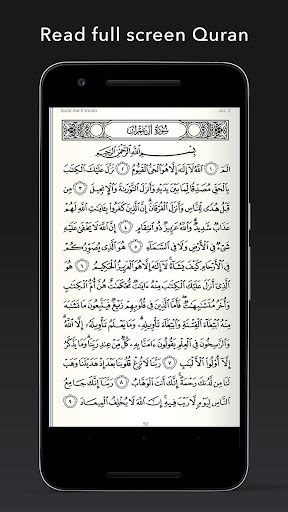 Read full screen Quran
Surat Aal-E-Imran Juz' 3
سُورَةُ آلِ عِمْرَانَ
بِسْمِ ٱللَّهِ ٱلرَّحْمَٰنِ ٱلرَّحِيمِ
الٓمٓ ١ ٱللَّهُ لَآ إِلَٰهَ إِلَّا هُوَ ٱلْحَىُّ ٱلْقَيُّومُ ٢ نَزَّلَ عَلَيْكَ ٱلْكِتَٰبَ
بِٱلْحَقِّ مُصَدِّقًا لِّمَا بَيْنَ يَدَيْهِ وَأَنزَلَ ٱلتَّوْرَىٰةَ وَٱلْإِنجِيلَ ٣ مِن
قَبْلُ هُدًى لِّلنَّاسِ وَأَنزَلَ ٱلْفُرْقَانَ إِنَّ ٱلَّذِينَ كَفَرُوا۟ بِـَٔايَٰتِ ٱللَّهِ لَهُمْ
عَذَابٌ شَدِيدٌ وَٱللَّهُ عَزِيزٌ ذُو ٱنتِقَامٍ ٤ إِنَّ ٱللَّهَ لَا يَخْفَىٰ عَلَيْهِ
شَىْءٌ فِى ٱلْأَرْضِ وَلَا فِى ٱلسَّمَآءِ ٥ هُوَ ٱلَّذِى يُصَوِّرُكُمْ
فِى ٱلْأَرْحَامِ كَيْفَ يَشَآءُ لَآ إِلَٰهَ إِلَّا هُوَ ٱلْعَزِيزُ ٱلْحَكِيمُ ٦
هُوَ ٱلَّذِىٓ أَنزَلَ عَلَيْكَ ٱلْكِتَٰبَ مِنْهُ ءَايَٰتٌ مُّحْكَمَٰتٌ هُنَّ أُمُّ ٱلْكِتَٰبِ
وَأُخَرُ مُتَشَٰبِهَٰتٌ فَأَمَّا ٱلَّذِينَ فِى قُلُوبِهِمْ زَيْغٌ فَيَتَّبِعُونَ مَا تَشَٰبَهَ
مِنْهُ ٱبْتِغَآءَ ٱلْفِتْنَةِ وَٱبْتِغَآءَ تَأْوِيلِهِۦ وَمَا يَعْلَمُ تَأْوِيلَهُۥٓ إِلَّا ٱللَّهُ
وَٱلرَّٰسِخُونَ فِى ٱلْعِلْمِ يَقُولُونَ ءَامَنَّا بِهِۦ كُلٌّ مِّنْ عِندِ رَبِّنَا وَمَا يَذَّكَّرُ
إِلَّآ أُو۟لُوا۟ ٱلْأَلْبَٰبِ ٧ رَبَّنَا لَا تُزِغْ قُلُوبَنَا بَعْدَ إِذْ هَدَيْتَنَا وَهَبْ
لَنَا مِن لَّدُنكَ رَحْمَةً إِنَّكَ أَنتَ ٱلْوَهَّابُ ٨ رَبَّنَآ إِنَّكَ جَامِعُ
ٱلنَّاسِ لِيَوْمٍ لَّا رَيْبَ فِيهِ إِنَّ ٱللَّهَ لَا يُخْلِفُ ٱلْمِيعَادَ ٩
50